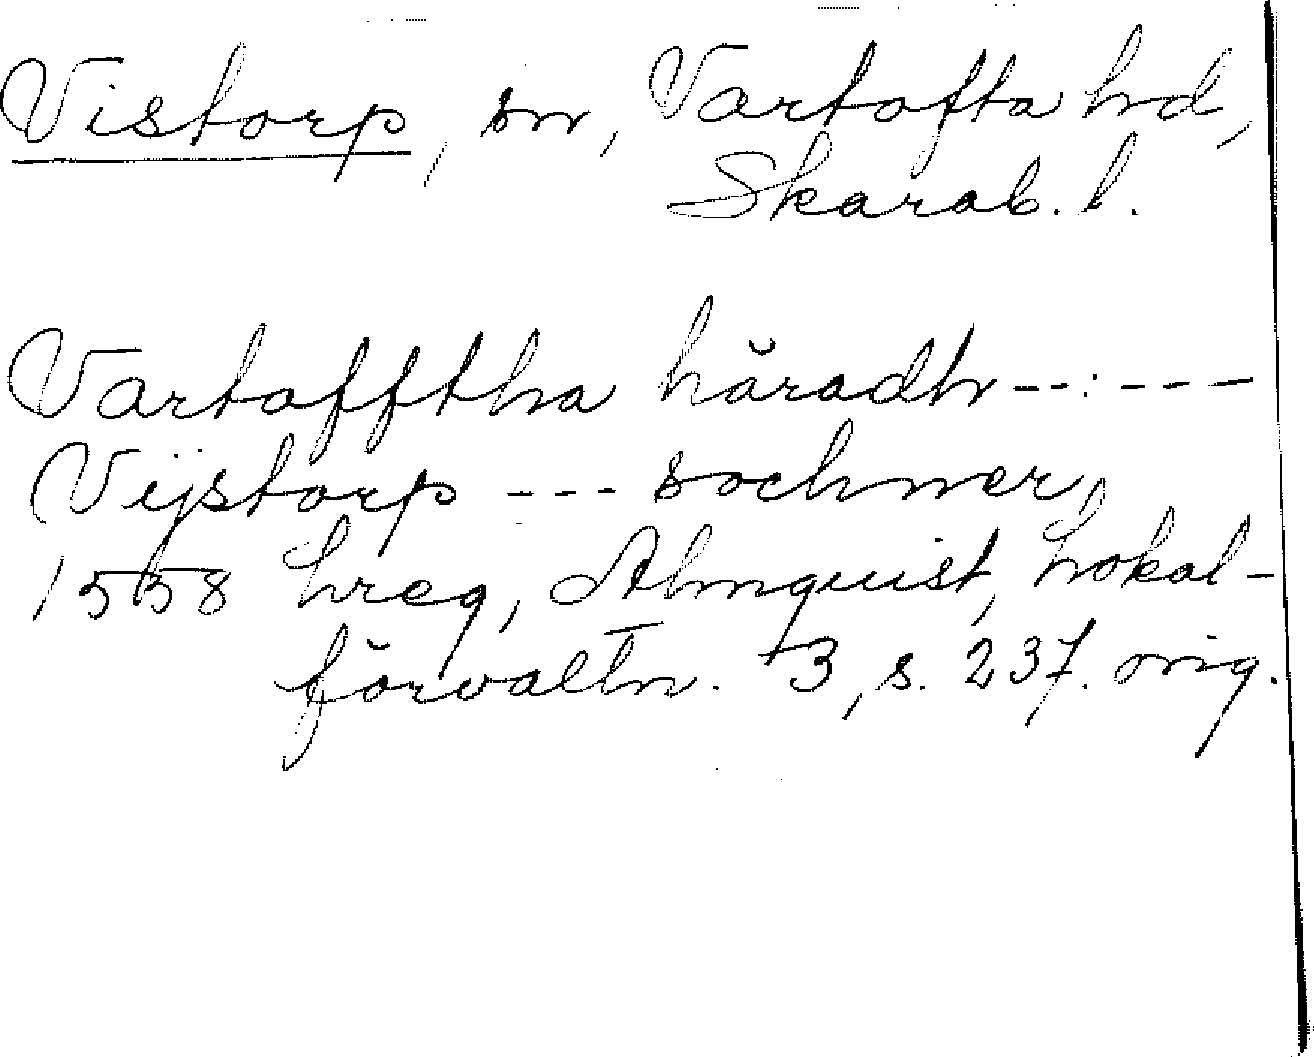 Vistorp, sn, Vartofta hd,
Skarab. l.
Vartafftha häradh --:---
Vijstorp --- sochner,
1558 hreg, Almquist, Lokal-
förvaltn. 3, s. 237. orig.